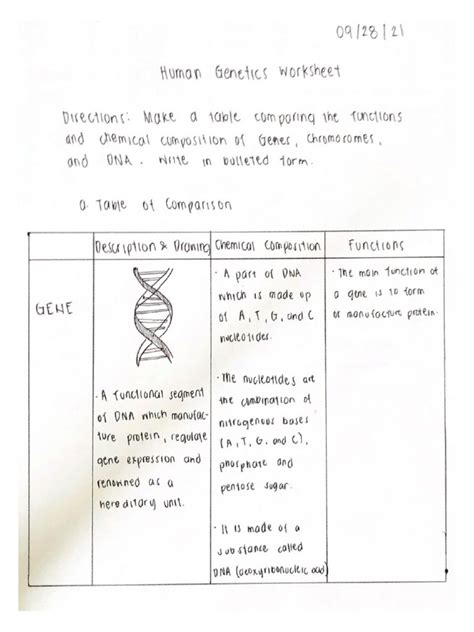 09/28/21
Human Genetics Worksheet
Directions: Make a table comparing the functions
and chemical composition of Genes, Chromosomes,
and DNA. Write in bulleted form.
a. Table of Comparison
Description & Drawing
Chemical Composition
Functions
GENE
· A functional segment
of DNA which manufac-
ture protein, regulate
gene expression and
renowned as a
hereditary unit.
· A part of DNA
which is made up
of A, T, G, and C
nucleotides.
· The nucleotides are
the combination of
nitrogenous bases
(A, T, G. and C),
phosphate and
pentose sugar.
· It is made of a
substance called
DNA (deoxyribonucleic acid)
· The main function of
a gene is to form
or manufacture protein.